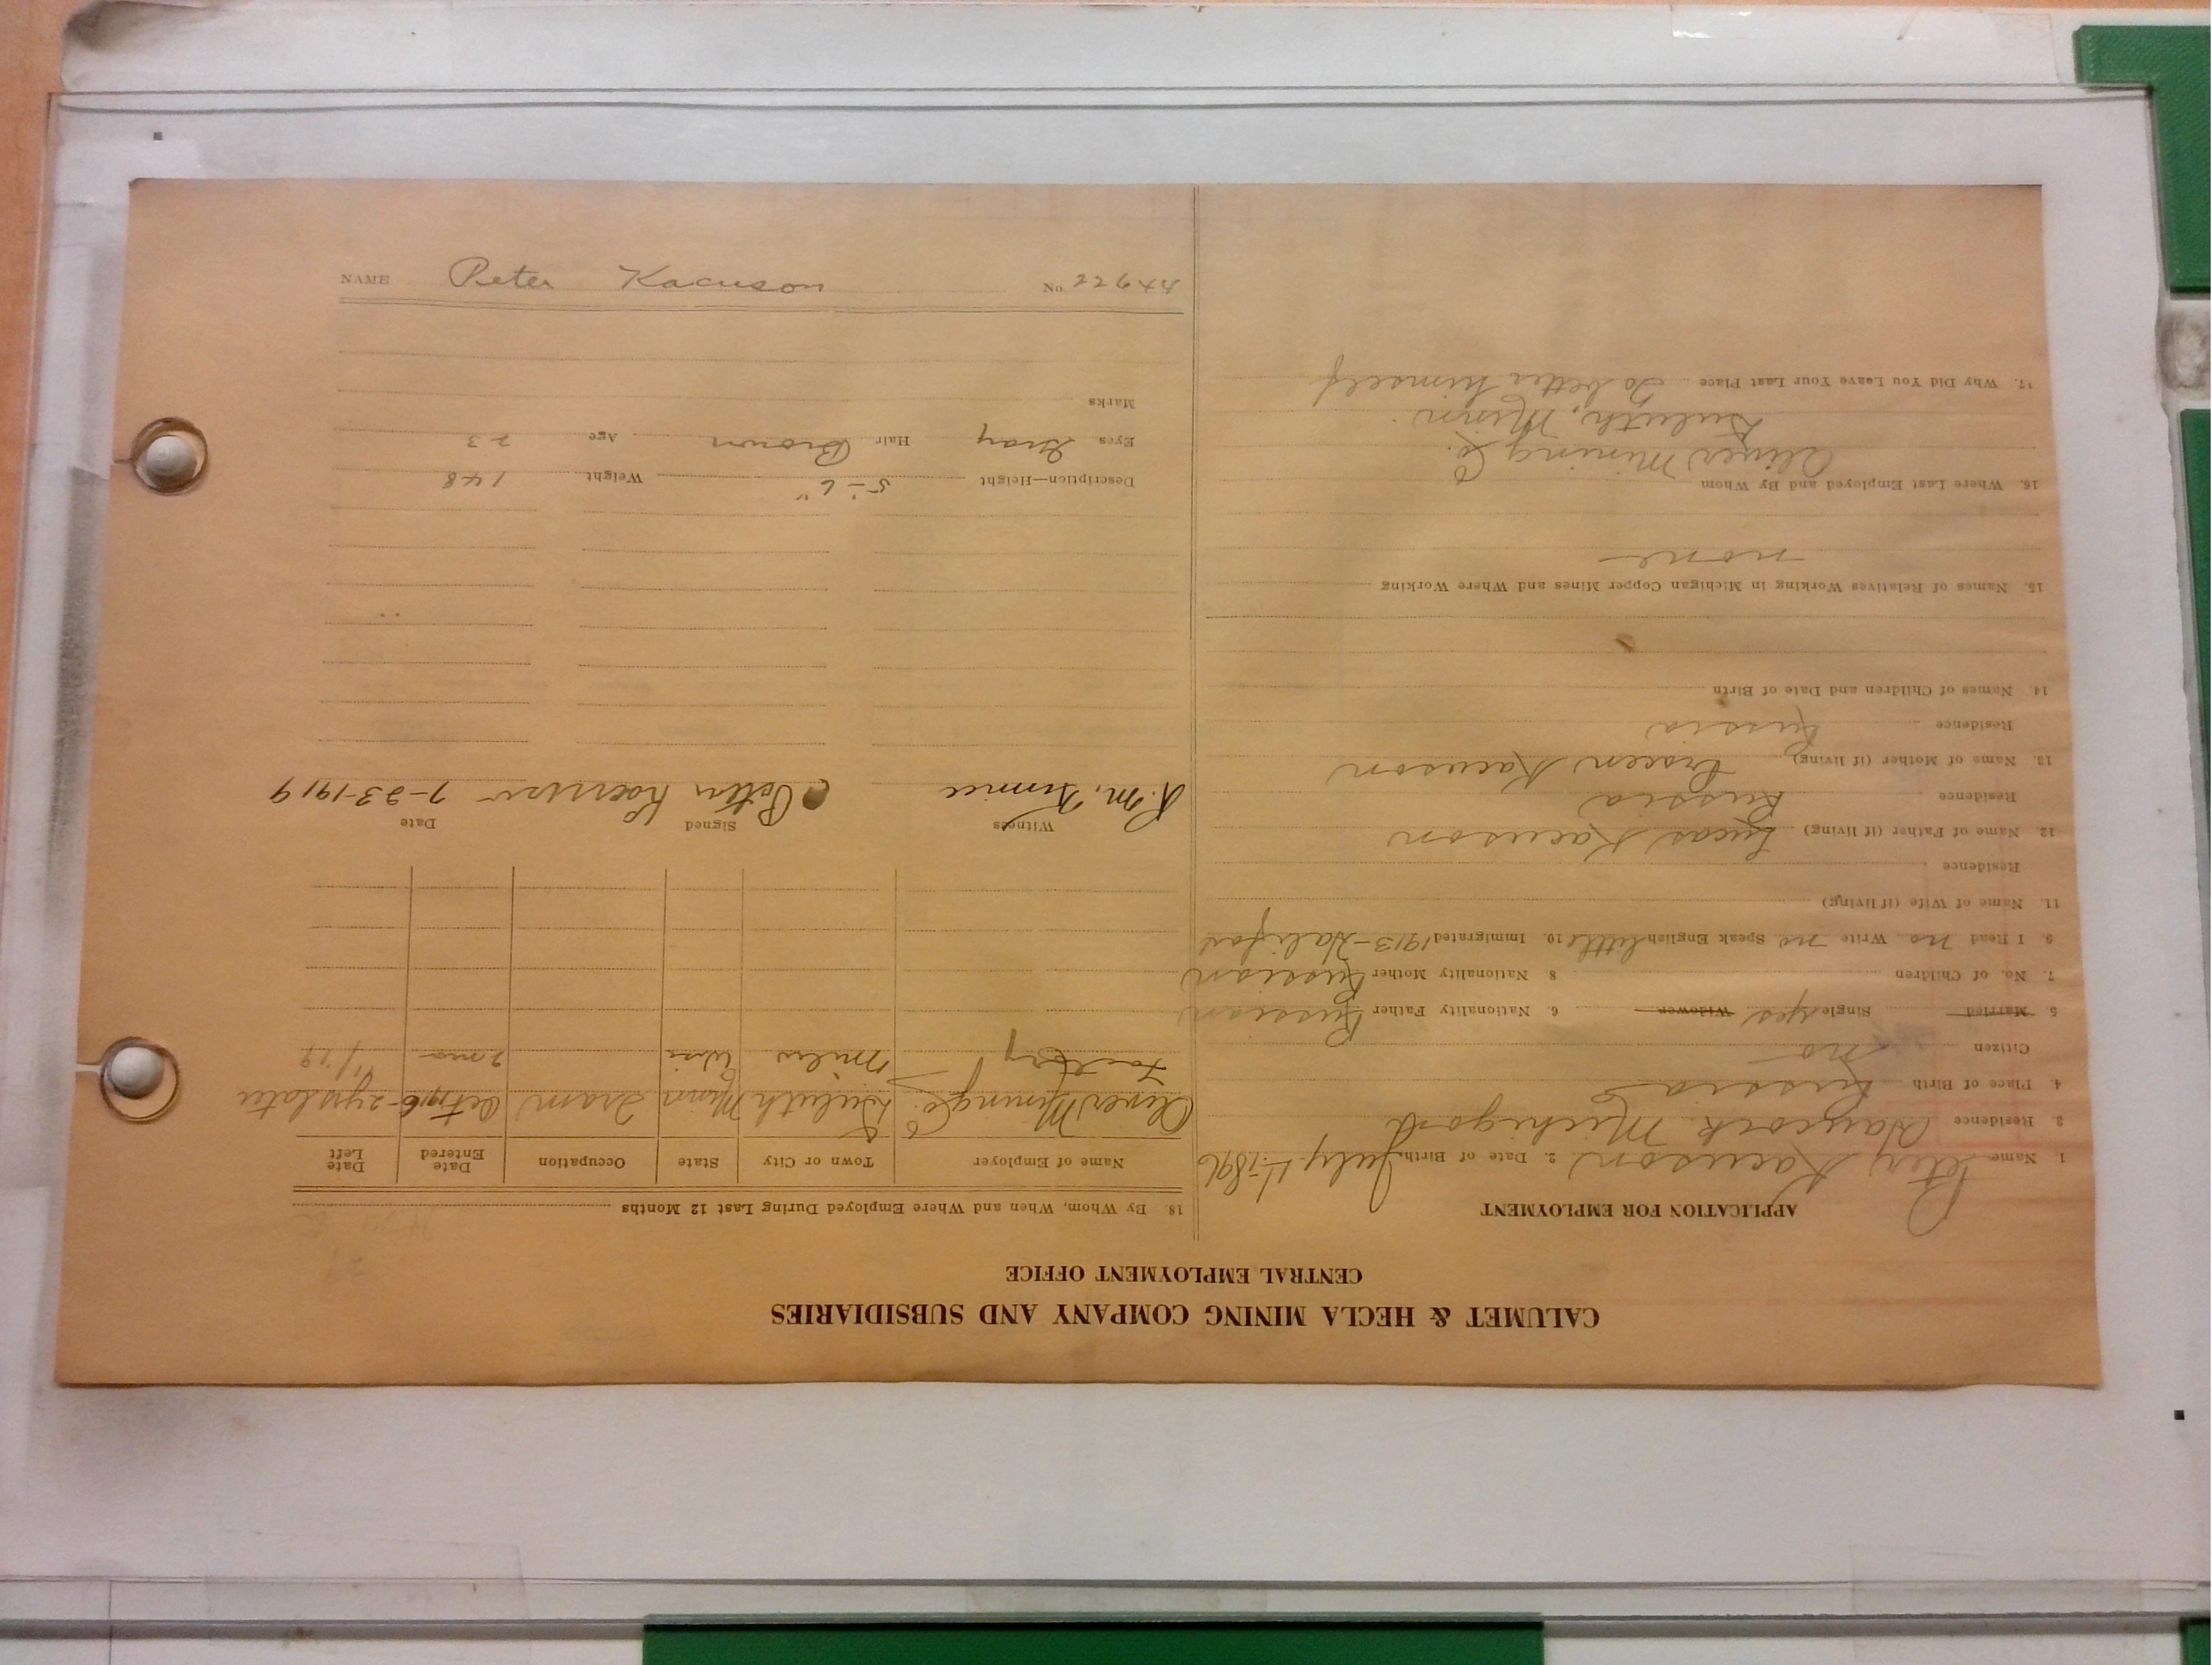 CALUMET & HECLA MINING COMPANY AND SUBSIDIARIES
CENTRAL EMPLOYMENT OFFICE
APPLICATION FOR EMPLOYMENT
1 Name Peter Kacuson 2. Date of Birth July 1-1896
3 Residence Michigan
4. Place of Birth Russia
Citizen no
5. Married Single yes Widower 6. Nationality Father Russian
7. No. of Children 8 Nationality Mother Russian
9. I Read no Write no Speak English little 10. Immigrated 1913-Halifax
11. Name of Wife (if living)
Residence
12. Name of Father (if living) Lucas Kacuson
Residence Russia
13. Name of Mother (if living) Kacuson
Residence Russia
14. Names of Children and Date of Birth
15. Names of Relatives Working in Michigan Copper Mines and Where Working
none
16. Where Last Employed and By Whom
Oliver Mining Co.
Duluth, Minn.
17. Why Did You Leave Your Last Place To better himself
18. By Whom, When and Where Employed During Last 12 Months
Name of Employer Town or City State Occupation Date Entered Date Left
Oliver Mining Co. Duluth Minn Tram Oct 1916-2 yrs later
Factory Wis 2 mo
Witness Signed Date
R. M. Peter 7-23-1919
Description—Height 5'-6" Weight 148
Eyes Gray Hair Brown Age 23
Marks
NAME Peter Kacuson No. 22644